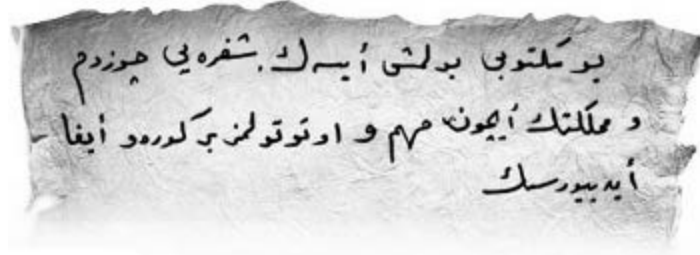 بو مكتوبى بولمشى أيسه ك. شفره يي چوزدم
و مملكتك أيچون مهم و اوتوتولمز بر كوره و أيفا
أيدييورسك